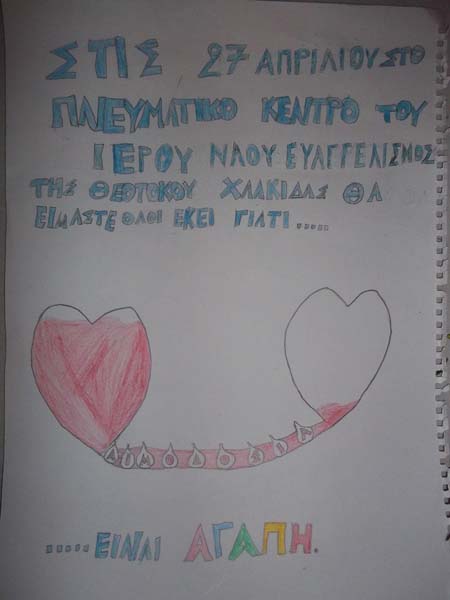 ΣΤΙΣ 27 ΑΠΡΙΛΙΟΥ ΣΤΟ
ΠΝΕΥΜΑΤΙΚΟ ΚΕΝΤΡΟ ΤΟΥ
ΙΕΡΟΥ ΝΑΟΥ ΕΥΑΓΓΕΛΙΣΜΟΣ
ΤΗΣ ΘΕΟΤΟΚΟΥ ΧΛΑΚΙΔΑΣ ΘΑ
ΕΙΜΑΣΤΕ ΟΛΟΙ ΕΚΕΙ ΓΙΑΤΙ.....
ΑΙΜΟΔΟΣΙΑ
.....ΕΙΝΑΙ ΑΓΑΠΗ.